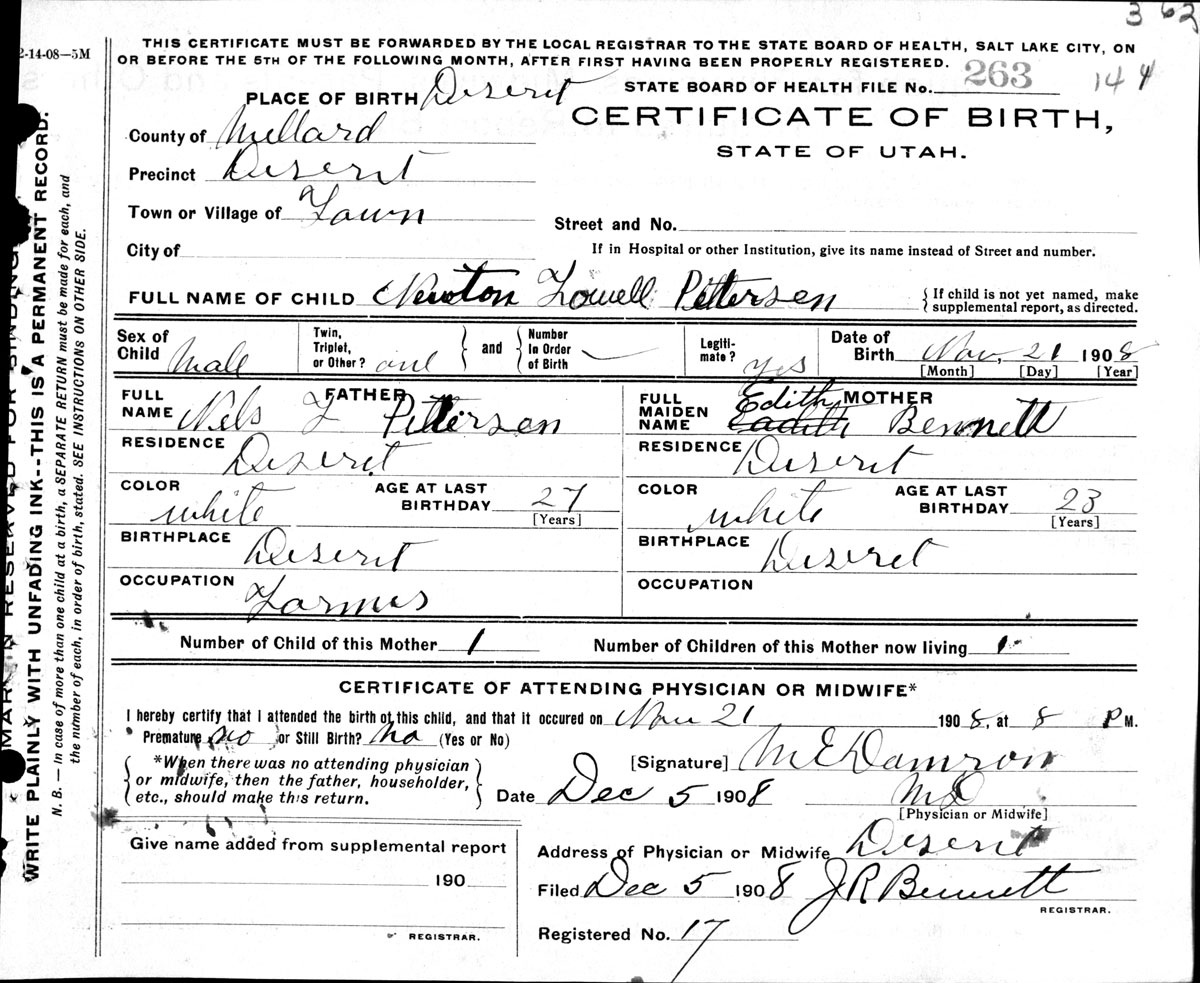 3 62
2-14-08—5M
THIS CERTIFICATE MUST BE FORWARDED BY THE LOCAL REGISTRAR TO THE STATE BOARD OF HEALTH, SALT LAKE CITY, ON
OR BEFORE THE 5TH OF THE FOLLOWING MONTH, AFTER FIRST HAVING BEEN PROPERLY REGISTERED.
STATE BOARD OF HEALTH FILE No. 263 144
PLACE OF BIRTH Deseret
CERTIFICATE OF BIRTH,
STATE OF UTAH.
County of Millard
Precinct Deseret
Town or Village of Town
Street and No.
City of
If in Hospital or other Institution, give its name instead of Street and number.
FULL NAME OF CHILD Newton Lowell Pettersen
{ If child is not yet named, make
supplemental report, as directed.
Sex of Child Male
Twin, Triplet, or Other? one } and { Number In Order of Birth —
Legiti-mate? yes
Date of Birth Nov, 21 1908
[Month] [Day] [Year]
FATHER
FULL NAME Nels L Pettersen
RESIDENCE Deseret
COLOR white AGE AT LAST BIRTHDAY 27 [Years]
BIRTHPLACE Deseret
OCCUPATION Farmer
MOTHER
FULL MAIDEN NAME Edith Bennett
RESIDENCE Deseret
COLOR white AGE AT LAST BIRTHDAY 23 [Years]
BIRTHPLACE Deseret
OCCUPATION
Number of Child of this Mother 1 Number of Children of this Mother now living 1
CERTIFICATE OF ATTENDING PHYSICIAN OR MIDWIFE*
I hereby certify that I attended the birth of this child, and that it occured on Nov 21 1908, at 8 P M.
Premature no or Still Birth? No (Yes or No)
{ *When there was no attending physician
or midwife, then the father, householder,
etc., should make this return. }
[Signature] M E Damron
Date Dec 5 1908 MD
[Physician or Midwife]
Give name added from supplemental report
190
REGISTRAR.
Address of Physician or Midwife Deseret
Filed Dec 5 1908 J R Bennett
REGISTRAR.
Registered No. 17
MARGIN RESERVED FOR BINDING
WRITE PLAINLY WITH UNFADING INK--THIS IS A PERMANENT RECORD.
N. B.—In case of more than one child at a birth, a SEPARATE RETURN must be made for each, and
the number of each, in order of birth, stated. SEE INSTRUCTIONS ON OTHER SIDE.